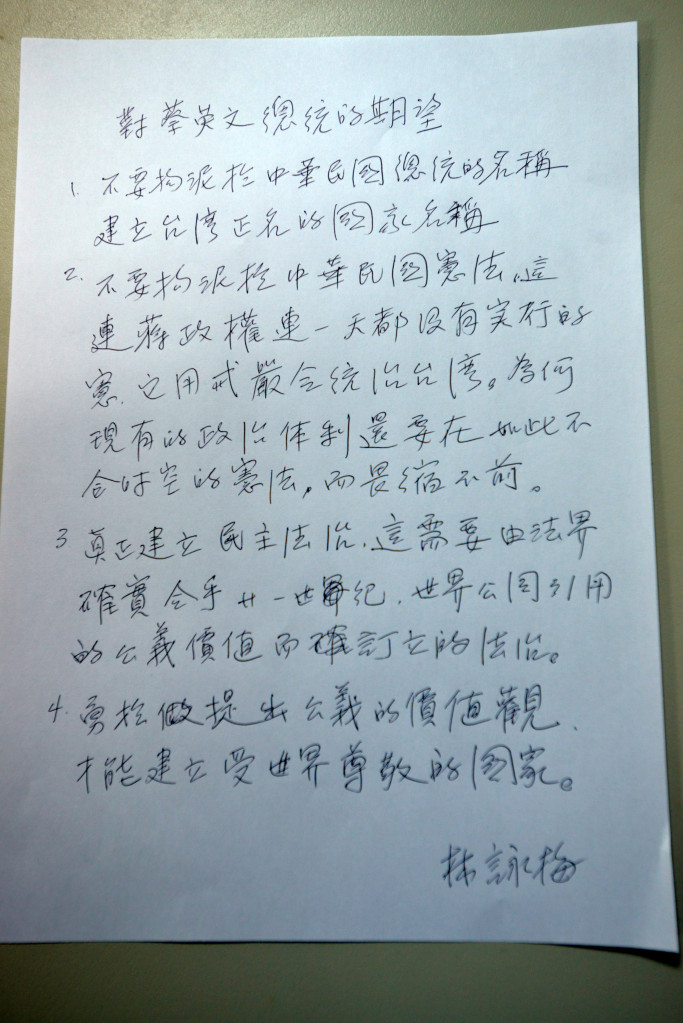 對蔡英文總統的期望
1. 不要拘泥於中華民國總統的名稱
建立台湾正名的國家名稱
2. 不要拘泥於中華民國憲法,這
連蔣政權連一天都沒有实行的
憲、它用戒嚴令統治台湾。為何
現有的政治体制還要在如此不
合时空的憲法,而畏縮不前。
3 真正建立民主法治,這需要由法界
確實合乎廿一世紀,世界公同引用
的公義價值而確訂立的法治。
4. 勇於做提出公義的價值觀、
才能建立受世界尊敬的國家。
林詠梅